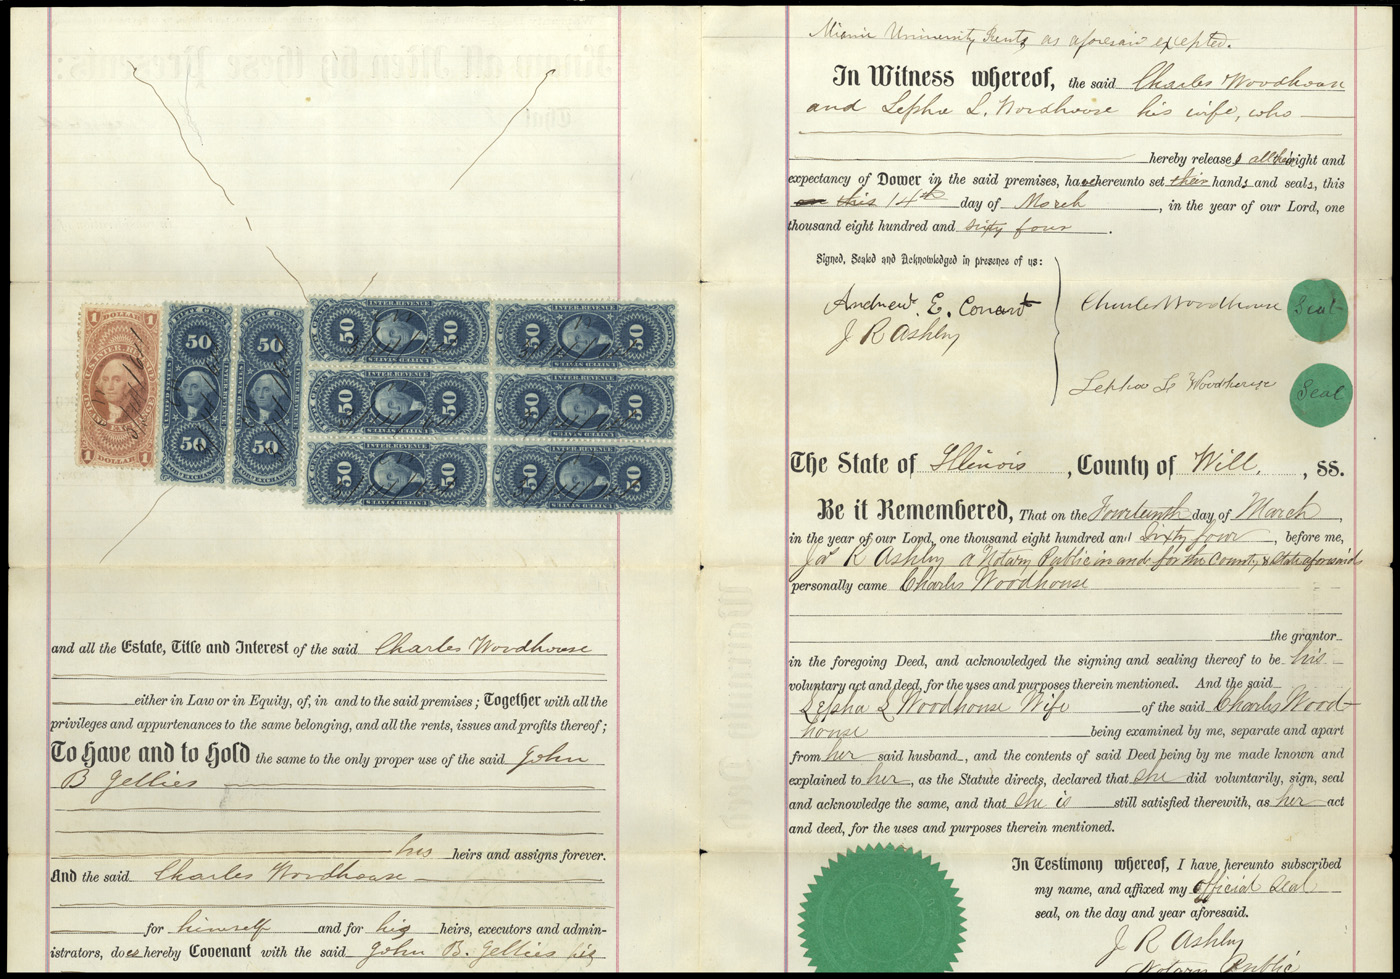 1 DOLLAR 1
U.S. INTER. REV.
1 DOLLAR 1
50
50
50
50
INTER. REVENUE
50 50
UNITED STATES
INTER. REVENUE
50 50
UNITED STATES
50 50
UNITED STATES
50 50
UNITED STATES
INTER. REVENUE
50 50
UNITED STATES
INTER. REVENUE
50 50
UNITED STATES
and all the Estate, Title and Interest of the said Charles Woodhouse
either in Law or in Equity, of, in and to the said premises; Together with all the
privileges and appurtenances to the same belonging, and all the rents, issues and profits thereof;
To Have and to Hold the same to the only proper use of the said John
B Gellies
his heirs and assigns forever.
And the said Charles Woodhouse
for himself and for his heirs, executors and admin-
istrators, does hereby Covenant with the said John B. Gellies his
Miami University Rents as aforesaid excepted.
In Witness whereof, the said Charles Woodhouse
and Lepha L. Woodhouse his wife, who
hereby release all their right and
expectancy of Dower in the said premises, have hereunto set their hands and seals, this
on this 14th day of March, in the year of our Lord, one
thousand eight hundred and sixty four.
Signed, Sealed and Acknowledged in presence of us:
Andrew. E. Conant
J R Ashley
Charles Woodhouse Seal
Lepha L Woodhouse Seal
The State of Illinois, County of Will., SS.
Be it Remembered, That on the Fourteenth day of March,
in the year of our Lord, one thousand eight hundred and Sixty four, before me,
Jas R Ashley a Notary Public in and for the County & State aforesaid
personally came Charles Woodhouse
the grantor
in the foregoing Deed, and acknowledged the signing and sealing thereof to be his
voluntary act and deed, for the uses and purposes therein mentioned. And the said
Lepha L Woodhouse Wife of the said Charles Wood-
house being examined by me, separate and apart
from her said husband, and the contents of said Deed being by me made known and
explained to her, as the Statute directs, declared that she did voluntarily, sign, seal
and acknowledge the same, and that she is still satisfied therewith, as her act
and deed, for the uses and purposes therein mentioned.
In Testimony whereof, I have hereunto subscribed
my name, and affixed my official Seal
seal, on the day and year aforesaid.
J R Ashley
Notary Public